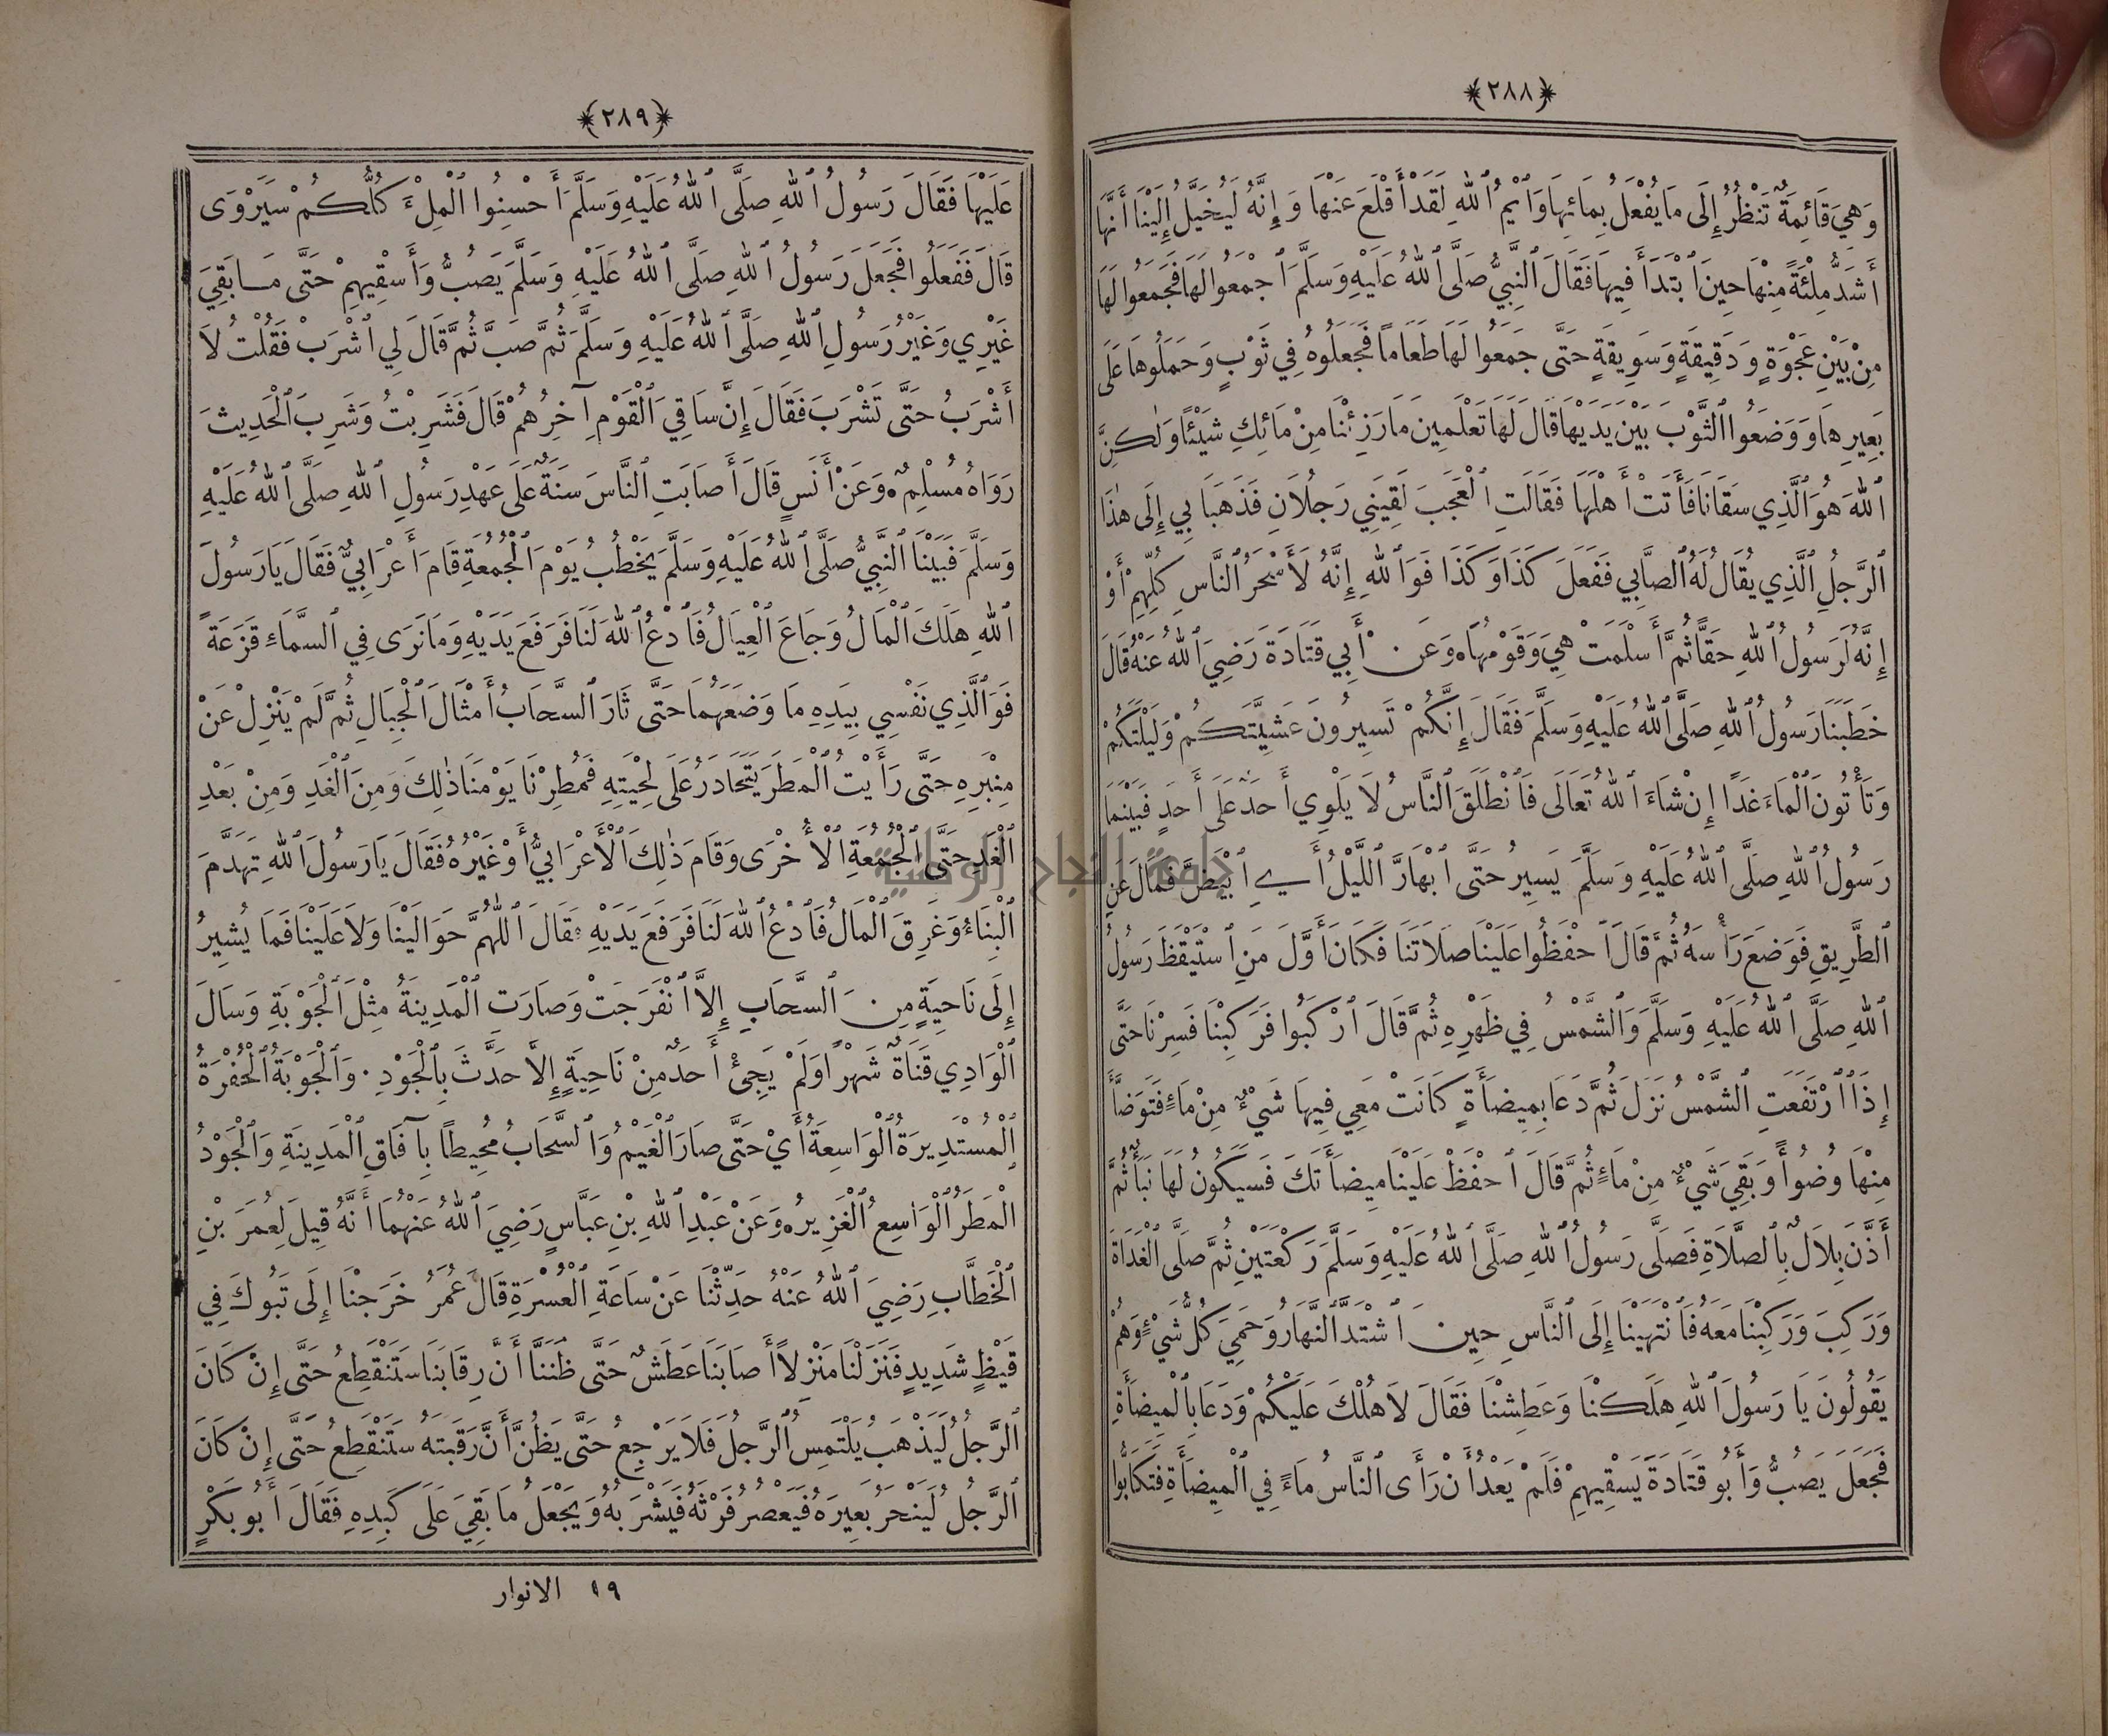 ﴿٢٨٨﴾
وَهِيَ قَائِمَةٌ تَنْظُرُ إِلَى مَا يُفْعَلُ بِمَائِهَا وَٱيْمُ ٱللهِ لَقَدْ أَقْلَعَ عَنْهَا وَإِنَّهُ لَيُخَيَّلُ إِلَيْنَا أَنَّهَا
أَشَدُّ مِلْئَةً مِنْهَا حِينَ ٱبْتَدَأَ فِيهَا فَقَالَ ٱلنَّبِيُّ صَلَّى ٱللهُ عَلَيْهِ وَسَلَّمَ ٱجْمَعُوا لَهَا فَجَمَعُوا لَهَا
مِنْ بَيْنِ عَجْوَةٍ وَدَقِيقَةٍ وَسَوِيقَةٍ حَتَّى جَمَعُوا لَهَا طَعَامًا فَجَعَلُوهُ فِي ثَوْبٍ وَحَمَلُوهَا عَلَى
بَعِيرِهَا وَوَضَعُوا ٱلثَّوْبَ بَيْنَ يَدَيْهَا قَالَ لَهَا تَعْلَمِينَ مَا رَزِئْنَا مِنْ مَائِكِ شَيْئًا وَلٰكِنَّ
ٱللهَ هُوَ ٱلَّذِي سَقَانَا فَأَتَتْ أَهْلَهَا فَقَالَتِ ٱلْعَجَبَ لَقِيَنِي رَجُلَانِ فَذَهَبَا بِي إِلَى هٰذَا
ٱلرَّجُلِ ٱلَّذِي يُقَالُ لَهُ ٱلصَّابِي فَفَعَلَ كَذَا وَكَذَا فَوَٱللهِ إِنَّهُ لَأَسْحَرُ ٱلنَّاسِ كُلِّهِمْ أَوْ
إِنَّهُ لَرَسُولُ ٱللهِ حَقًّا ثُمَّ أَسْلَمَتْ هِيَ وَقَوْمُهَا ۞ وَعَنْ أَبِي قَتَادَةَ رَضِيَ ٱللهُ عَنْهُ قَالَ
خَطَبَنَا رَسُولُ ٱللهِ صَلَّى ٱللهُ عَلَيْهِ وَسَلَّمَ فَقَالَ إِنَّكُمْ تَسِيرُونَ عَشِيَّتَكُمْ وَلَيْلَتَكُمْ
وَتَأْتُونَ ٱلْمَاءَ غَدًا إِنْ شَاءَ ٱللهُ تَعَالَى فَٱنْطَلَقَ ٱلنَّاسُ لَا يَلْوِي أَحَدٌ عَلَى أَحَدٍ فَبَيْنَمَا
رَسُولُ ٱللهِ صَلَّى ٱللهُ عَلَيْهِ وَسَلَّمَ يَسِيرُ حَتَّى ٱبْهَارَّ ٱللَّيْلُ أَيِ ٱبْيَضَّ فَمَالَ عَنِ
ٱلطَّرِيقِ فَوَضَعَ رَأْسَهُ ثُمَّ قَالَ ٱحْفَظُوا عَلَيْنَا صَلَاتَنَا فَكَانَ أَوَّلَ مَنِ ٱسْتَيْقَظَ رَسُولُ
ٱللهِ صَلَّى ٱللهُ عَلَيْهِ وَسَلَّمَ وَٱلشَّمْسُ فِي ظَهْرِهِ ثُمَّ قَالَ ٱرْكَبُوا فَرَكِبْنَا فَسِرْنَا حَتَّى
إِذَا ٱرْتَفَعَتِ ٱلشَّمْسُ نَزَلَ ثُمَّ دَعَا بِمِيضَأَةٍ كَانَتْ مَعِي فِيهَا شَيْءٌ مِنْ مَاءٍ فَتَوَضَّأَ
مِنْهَا وُضُوأً وَبَقِيَ شَيْءٌ مِنْ مَاءٍ ثُمَّ قَالَ ٱحْفَظْ عَلَيْنَا مِيضَأَتَكَ فَسَيَكُونُ لَهَا نَبَأٌ ثُمَّ
أَذَّنَ بِلَالٌ بِٱلصَّلَاةِ فَصَلَّى رَسُولُ ٱللهِ صَلَّى ٱللهُ عَلَيْهِ وَسَلَّمَ رَكْعَتَيْنِ ثُمَّ صَلَّى ٱلْغَدَاةَ
وَرَكِبَ وَرَكِبْنَا مَعَهُ فَٱنْتَهَيْنَا إِلَى ٱلنَّاسِ حِينَ ٱشْتَدَّ ٱلنَّهَارُ وَحَمِيَ كُلُّ شَيْءٍ وَهُمْ
يَقُولُونَ يَا رَسُولَ ٱللهِ هَلَكْنَا وَعَطِشْنَا فَقَالَ لَا هُلْكَ عَلَيْكُمْ وَدَعَا بِٱلْمِيضَأَةِ
فَجَعَلَ يَصُبُّ وَأَبُو قَتَادَةَ يَسْقِيهِمْ فَلَمْ يَعْدُ أَنْ رَأَى ٱلنَّاسُ مَاءً فِي ٱلْمِيضَأَةِ فَتَكَابُّوا
﴿٢٨٩﴾
عَلَيْهَا فَقَالَ رَسُولُ ٱللهِ صَلَّى ٱللهُ عَلَيْهِ وَسَلَّمَ أَحْسِنُوا ٱلْمِلْءَ كُلُّكُمْ سَيَرْوَى
قَالَ فَفَعَلُوا فَجَعَلَ رَسُولُ ٱللهِ صَلَّى ٱللهُ عَلَيْهِ وَسَلَّمَ يَصُبُّ وَأَسْقِيهِمْ حَتَّى مَا بَقِيَ
غَيْرِي وَغَيْرُ رَسُولِ ٱللهِ صَلَّى ٱللهُ عَلَيْهِ وَسَلَّمَ ثُمَّ صَبَّ ثُمَّ قَالَ لِي ٱشْرَبْ فَقُلْتُ لَا
أَشْرَبُ حَتَّى تَشْرَبَ فَقَالَ إِنَّ سَاقِيَ ٱلْقَوْمِ آخِرُهُمْ قَالَ فَشَرِبْتُ وَشَرِبَ ٱلْحَدِيثَ
رَوَاهُ مُسْلِمٌ ۞ وَعَنْ أَنَسٍ قَالَ أَصَابَتِ ٱلنَّاسَ سَنَةٌ عَلَى عَهْدِ رَسُولِ ٱللهِ صَلَّى ٱللهُ عَلَيْهِ
وَسَلَّمَ فَبَيْنَا ٱلنَّبِيُّ صَلَّى ٱللهُ عَلَيْهِ وَسَلَّمَ يَخْطُبُ يَوْمَ ٱلْجُمُعَةِ قَامَ أَعْرَابِيٌّ فَقَالَ يَا رَسُولَ
ٱللهِ هَلَكَ ٱلْمَالُ وَجَاعَ ٱلْعِيَالُ فَٱدْعُ ٱللهَ لَنَا فَرَفَعَ يَدَيْهِ وَمَا نَرَى فِي ٱلسَّمَاءِ قَزَعَةً
فَوَٱلَّذِي نَفْسِي بِيَدِهِ مَا وَضَعَهُمَا حَتَّى ثَارَ ٱلسَّحَابُ أَمْثَالَ ٱلْجِبَالِ ثُمَّ لَمْ يَنْزِلْ عَنْ
مِنْبَرِهِ حَتَّى رَأَيْتُ ٱلْمَطَرَ يَتَحَادَرُ عَلَى لِحْيَتِهِ فَمُطِرْنَا يَوْمَنَا ذٰلِكَ وَمِنَ ٱلْغَدِ وَمِنْ بَعْدِ
ٱلْغَدِ حَتَّى ٱلْجُمُعَةِ ٱلْأُخْرَى وَقَامَ ذٰلِكَ ٱلْأَعْرَابِيُّ أَوْ غَيْرُهُ فَقَالَ يَا رَسُولَ ٱللهِ تَهَدَّمَ
ٱلْبِنَاءُ وَغَرِقَ ٱلْمَالُ فَٱدْعُ ٱللهَ لَنَا فَرَفَعَ يَدَيْهِ فَقَالَ ٱللّٰهُمَّ حَوَالَيْنَا وَلَا عَلَيْنَا فَمَا يُشِيرُ
إِلَى نَاحِيَةٍ مِنَ ٱلسَّحَابِ إِلَّا ٱنْفَرَجَتْ وَصَارَتِ ٱلْمَدِينَةُ مِثْلَ ٱلْجَوْبَةِ وَسَالَ
ٱلْوَادِي قَنَاةً شَهْرًا وَلَمْ يَجِئْ أَحَدٌ مِنْ نَاحِيَةٍ إِلَّا حَدَّثَ بِٱلْجَوْدِ ۰ وَٱلْجَوْبَةُ ٱلْحُفْرَةُ
ٱلْمُسْتَدِيرَةُ ٱلْوَاسِعَةُ أَيْ حَتَّى صَارَ ٱلْغَيْمُ وَٱلسَّحَابُ مُحِيطًا بِآفَاقِ ٱلْمَدِينَةِ وَٱلْجَوْدُ
ٱلْمَطَرُ ٱلْوَاسِعُ ٱلْغَزِيرُ ۞ وَعَنْ عَبْدِ ٱللهِ بْنِ عَبَّاسٍ رَضِيَ ٱللهُ عَنْهُمَا أَنَّهُ قِيلَ لِعُمَرَ بْنِ
ٱلْخَطَّابِ رَضِيَ ٱللهُ عَنْهُ حَدِّثْنَا عَنْ سَاعَةِ ٱلْعُسْرَةِ قَالَ عُمَرُ خَرَجْنَا إِلَى تَبُوكَ فِي
قَيْظٍ شَدِيدٍ فَنَزَلْنَا مَنْزِلًا أَصَابَنَا عَطَشٌ حَتَّى ظَنَنَّا أَنَّ رِقَابَنَا سَتَنْقَطِعُ حَتَّى إِنْ كَانَ
ٱلرَّجُلُ لَيَذْهَبُ يَلْتَمِسُ ٱلرَّجُلَ فَلَا يَرْجِعُ حَتَّى يَظُنَّ أَنَّ رَقَبَتَهُ سَتَنْقَطِعُ حَتَّى إِنْ كَانَ
ٱلرَّجُلُ لَيَنْحَرُ بَعِيرَهُ فَيَعْصُرُ فَرْثَهُ فَيَشْرَبُهُ وَيَجْعَلُ مَا بَقِيَ عَلَى كَبِدِهِ فَقَالَ أَبُو بَكْرٍ
١٩ الانوار
جامعة النجاح الوطنية